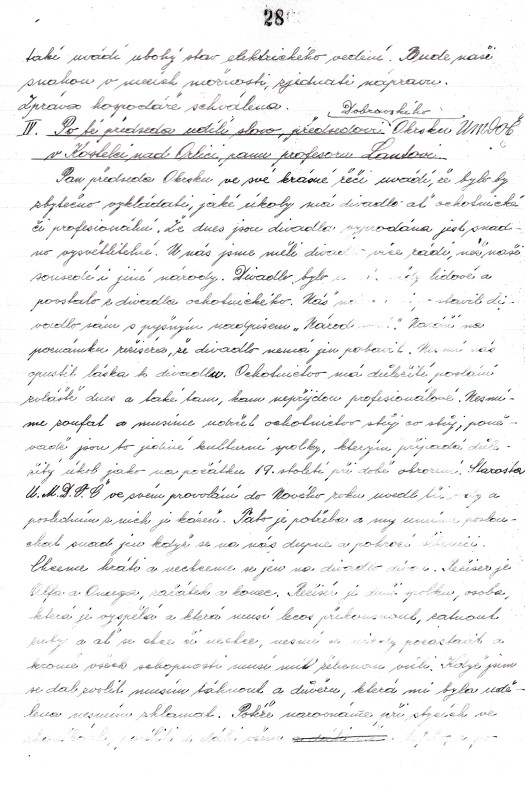 28
také uvádí ubohý stav elektrického vedení. Bude naší
snahou v mezích možností, zjednati nápravu.
Zpráva hospodáře schválena.
Dobrovského
IV. Po té předseda udělil slovo, předsedovi Okrsku UMDOČ
v Kostelci nad Orlicí, panu profesoru Landovi.
Pan předseda Okrsku ve své krásné řeči uvádí, že bylo by
zbytečno vykládati, jaké úkoly má divadlo ať ochotnické
či profesionální. Že dnes jsou divadla vyprodána jest snad-
no vysvětlitelné. U nás jsme měli divadlo více rádi, než naši
sousedé i jiné národy. Divadlo bylo lidové a
povstalo z divadla ochotnického. Náš postavil di-
vadlo sám s pyšným nadpisem „Národ Naráží na
poznámku režiséra, že divadlo nemá jen pobavit. Nesmí nás
opustit láska k divadlu. Ochotnictvo má důležité poslání
zvláště dnes a také tam, kam nepřijdou profesionálové. Nesmí-
me zoufat a musíme udržet ochotnictvo stůj co stůj, poně-
vadž jsou to jediné kulturní spolky, kterým připadá důle-
žitý úkol jako na počátku 19. století při době obrození. Starosta
Ú.M.D.O.Č ve svém provolání do Nového roku uvedl tři a
posledním z nich je kázeň. Tato je potřeba a my umíme poslou-
chat snad jen když se na nás dupne a pohrozí
Chceme hráti a nechceme se jen na divadlo Režisér je
Alfa a Omega, začátek a konec. Režisér je duší spolku, osoba,
která je vyspělá a která musí leccos překousnout, zatnout
zuby a ať se chce či nechce, nesmí se nikdy pozastavit a
kromě všech schopností musí mít železnou vůli. Když jsem
se dal zvolit musím táhnout a důvěru, která mi byla udě-
lena nesmím zklamat. Potíže narovnáme při stycích ve